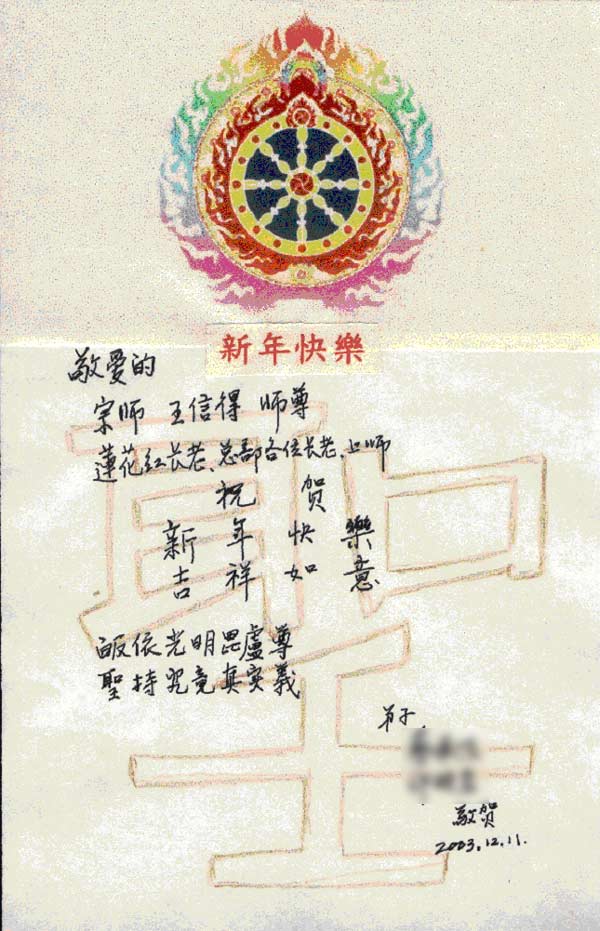 新年快樂
敬爱的
宗师 王信得 师尊
蓮花红长老、总部各位长老、上师
祝 贺
新 年 快 樂
吉 祥 如 意
皈依光明毘盧尊
聖持究竟真实義
弟子
敬贺
2003.12.11.
聖